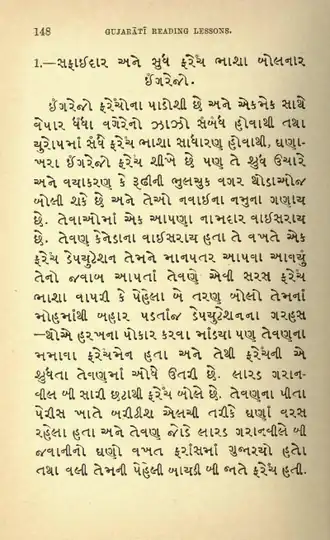 148 GUJARĀTĪ READING LESSONS.
1.—સફાઈદાર અને સુધ ફરેંચ ભાશા બોલનાર
ઈંગરેજો.
ઈંગરેજો ફરેંચોના પાડોશી છે અને એકમેક સાથે
વેપાર ધંધા વગેરેનો ઝાઝો સંબંધ હોવાથી તથા
યુરોપમાં સંધે ફરેંચ ભાશા સાધારણ હોવાથી, ઘણા-
ખરા ઈંગરેજો ફરેંચ શીખે છે પણ તે શુધ ઉચારે
અને વયાકરણ કે રૂઢીની ભુલચુક વગર થોડાઓજ
બોલી શકે છે અને તેઓ નવાઈના નમુના ગણાય
છે. તેવાઓમાં એક આપણા નામદાર વાઈસરાય
છે. તેવણ કેનેડાના વાઈસરાય હતા તે વખતે એક
ફરેંચ ડેપયુટેશન તેમને માનપતર આપવા આવયું
તેનો જવાબ આપતાં તેવણે એવી સરસ ફરેંચ
ભાશા વાપરી કે પેહેલા બે તરણ બોલો તેમનાં
મોહમાંથી બહાર પડતાંજ ડેપયુટેશનના ગરહસ
—થોએ હરખના પોકાર કરવા માંડયા પણ તેવણના
મમાવા ફરેંચમેન હતા અને તેથી ફરેંચની એ
શુધતા તેવણમાં ઓધે ઉતરી છે. લારડ ગરાન-
વીલ બી સારી છટાથી ફરેંચ બોલે છે. તેવણના પીતા
પેરીસ ખાતે બરીટીશ એલચી તરીકે ઘણાં વરસ
રહેલા હતા અને તેવણ જોડે લારડ ગરાનવીલે બી
જવાનીનો ઘણો વખત ફરાંસમાં ગુજારયો હતો
તથા વલી તેમની પેહેલી બાયડી બી જાતે ફરેંચ હતી.